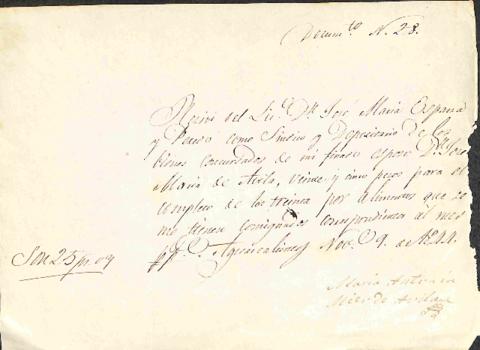 Docum.to N. 28.
Recivi del Lic. D. José Maria España
y Pedro como Sindico y Depositario de los
bienes concursados de mi finado esposo D. José
Maria de Avila, veinte y cinco pesos para el
completo de los treinta por alimentos que se
me tienen consignados correspondientes al mes
Aguascalientes Nov. 9. de 1844.
Son 25 p.
Maria Antonia
Mier de Avila